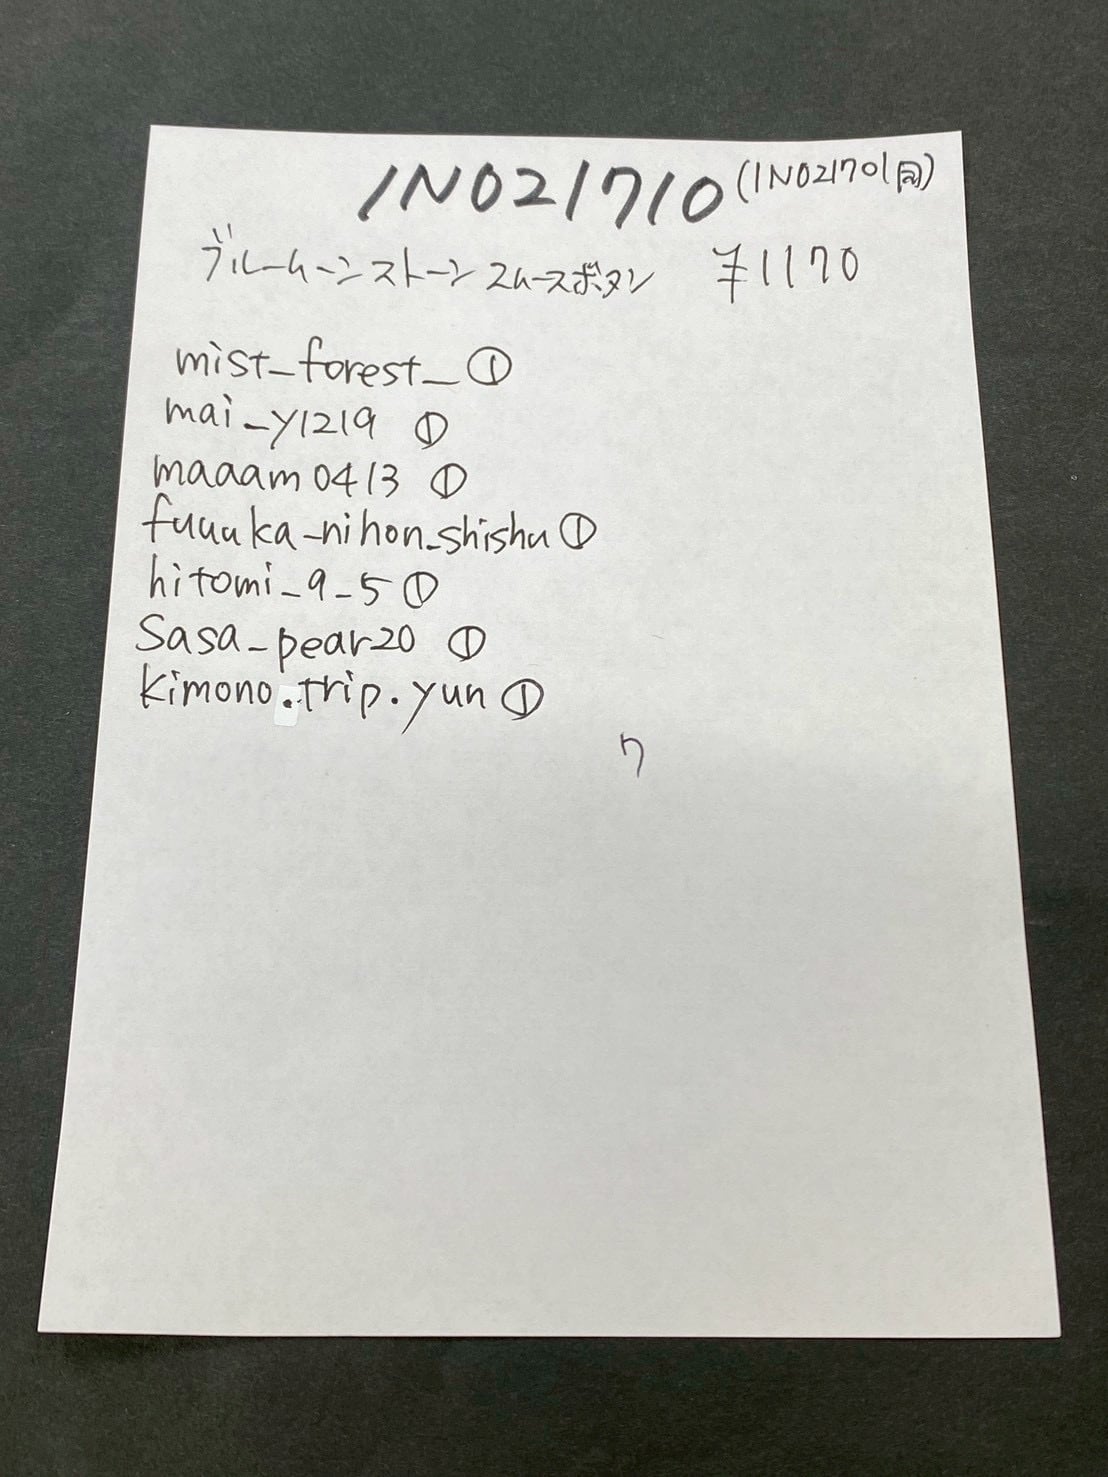 IN021710 (IN021701同)
ブルームーンストーン スムースボタン ¥1170
mist_forest_ ①
mai_y1219 ①
maaam0413 ①
fuuuka_nihon_shishu ①
hitomi_9_5 ①
sasa_pear20 ①
kimono.trip.yun ①
7